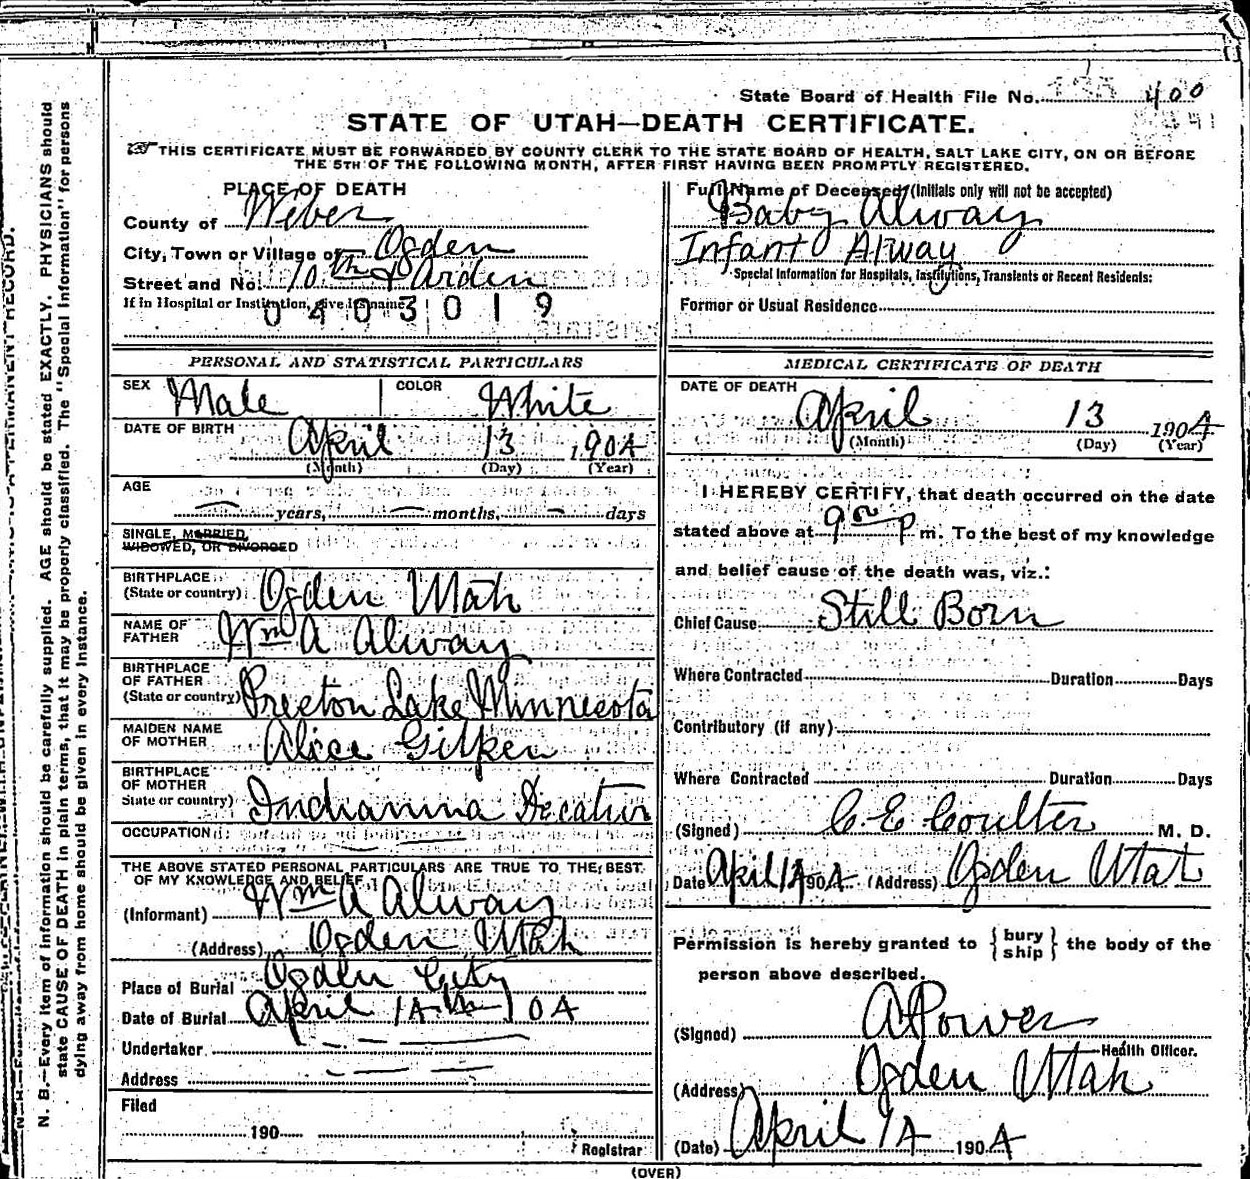 State Board of Health File No. 400
STATE OF UTAH—DEATH CERTIFICATE.
☞THIS CERTIFICATE MUST BE FORWARDED BY COUNTY CLERK TO THE STATE BOARD OF HEALTH, SALT LAKE CITY, ON OR BEFORE
THE 5TH OF THE FOLLOWING MONTH, AFTER FIRST HAVING BEEN PROMPTLY REGISTERED.
PLACE OF DEATH
County of Weber
City, Town or Village of Ogden
Street and No. 10th & Arden
If in Hospital or Institution, give its name
0403019
PERSONAL AND STATISTICAL PARTICULARS
SEX Male COLOR White
DATE OF BIRTH April 13 1904
(Month) (Day) (Year)
AGE
years, months, days
SINGLE, MARRIED,
WIDOWED, OR DIVORCED
BIRTHPLACE
(State or country) Ogden Utah
NAME OF
FATHER Wm A Alway
BIRTHPLACE
OF FATHER
(State or country) Preston Lake Minnesota
MAIDEN NAME
OF MOTHER Alice Gilpen
BIRTHPLACE
OF MOTHER
State or country) Indianna Decatur
OCCUPATION
THE ABOVE STATED PERSONAL PARTICULARS ARE TRUE TO THE BEST
OF MY KNOWLEDGE AND BELIEF
(Informant) Wm A Alway
(Address) Ogden Utah
Place of Burial Ogden City
Date of Burial April 14th 04
Undertaker
Address
Filed
190
Registrar
Full Name of Deceased (Initials only will not be accepted)
Baby Alway
Infant Alway
Special Information for Hospitals, Institutions, Transients or Recent Residents:
Former or Usual Residence
MEDICAL CERTIFICATE OF DEATH
DATE OF DEATH
April 13 1904
(Month) (Day) (Year)
I HEREBY CERTIFY, that death occurred on the date
stated above at 9 00 P m. To the best of my knowledge
and belief cause of the death was, viz.:
Chief Cause Still Born
Where Contracted Duration Days
Contributory (if any)
Where Contracted Duration Days
(Signed) C. E. Coulter M. D.
Date April 14 1904 (Address) Ogden Utah
Permission is hereby granted to { bury ship } the body of the
person above described.
(Signed) A Power
Health Officer.
(Address) Ogden Utah
(Date) April 14 1904
(OVER)
N. B.—Every item of information should be carefully supplied. AGE should be stated EXACTLY. PHYSICIANS should
state CAUSE OF DEATH in plain terms, that it may be properly classified. The "Special Information" for persons
dying away from home should be given in every instance.